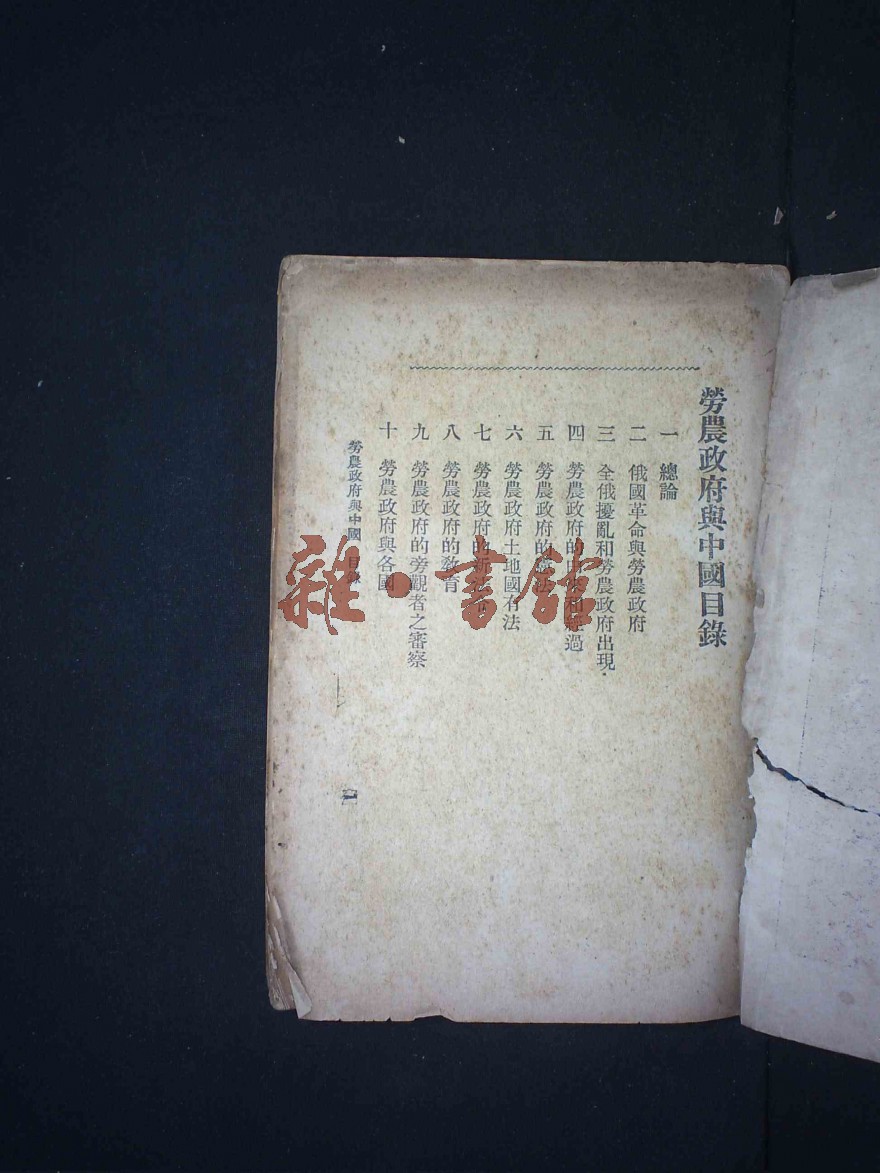 勞農政府與中國目錄
一 總論
二 俄國革命與勞農政府
三 全俄擾亂和勞農政府出現
四 勞農政府的由來和經過
五 勞農政府的憲法
六 勞農政府土地國有法
七 勞農政府的新法
八 勞農政府的教育
九 勞農政府的旁觀者之審察
十 勞農政府與各國
勞農政府與中國 目錄
一
雜·書館